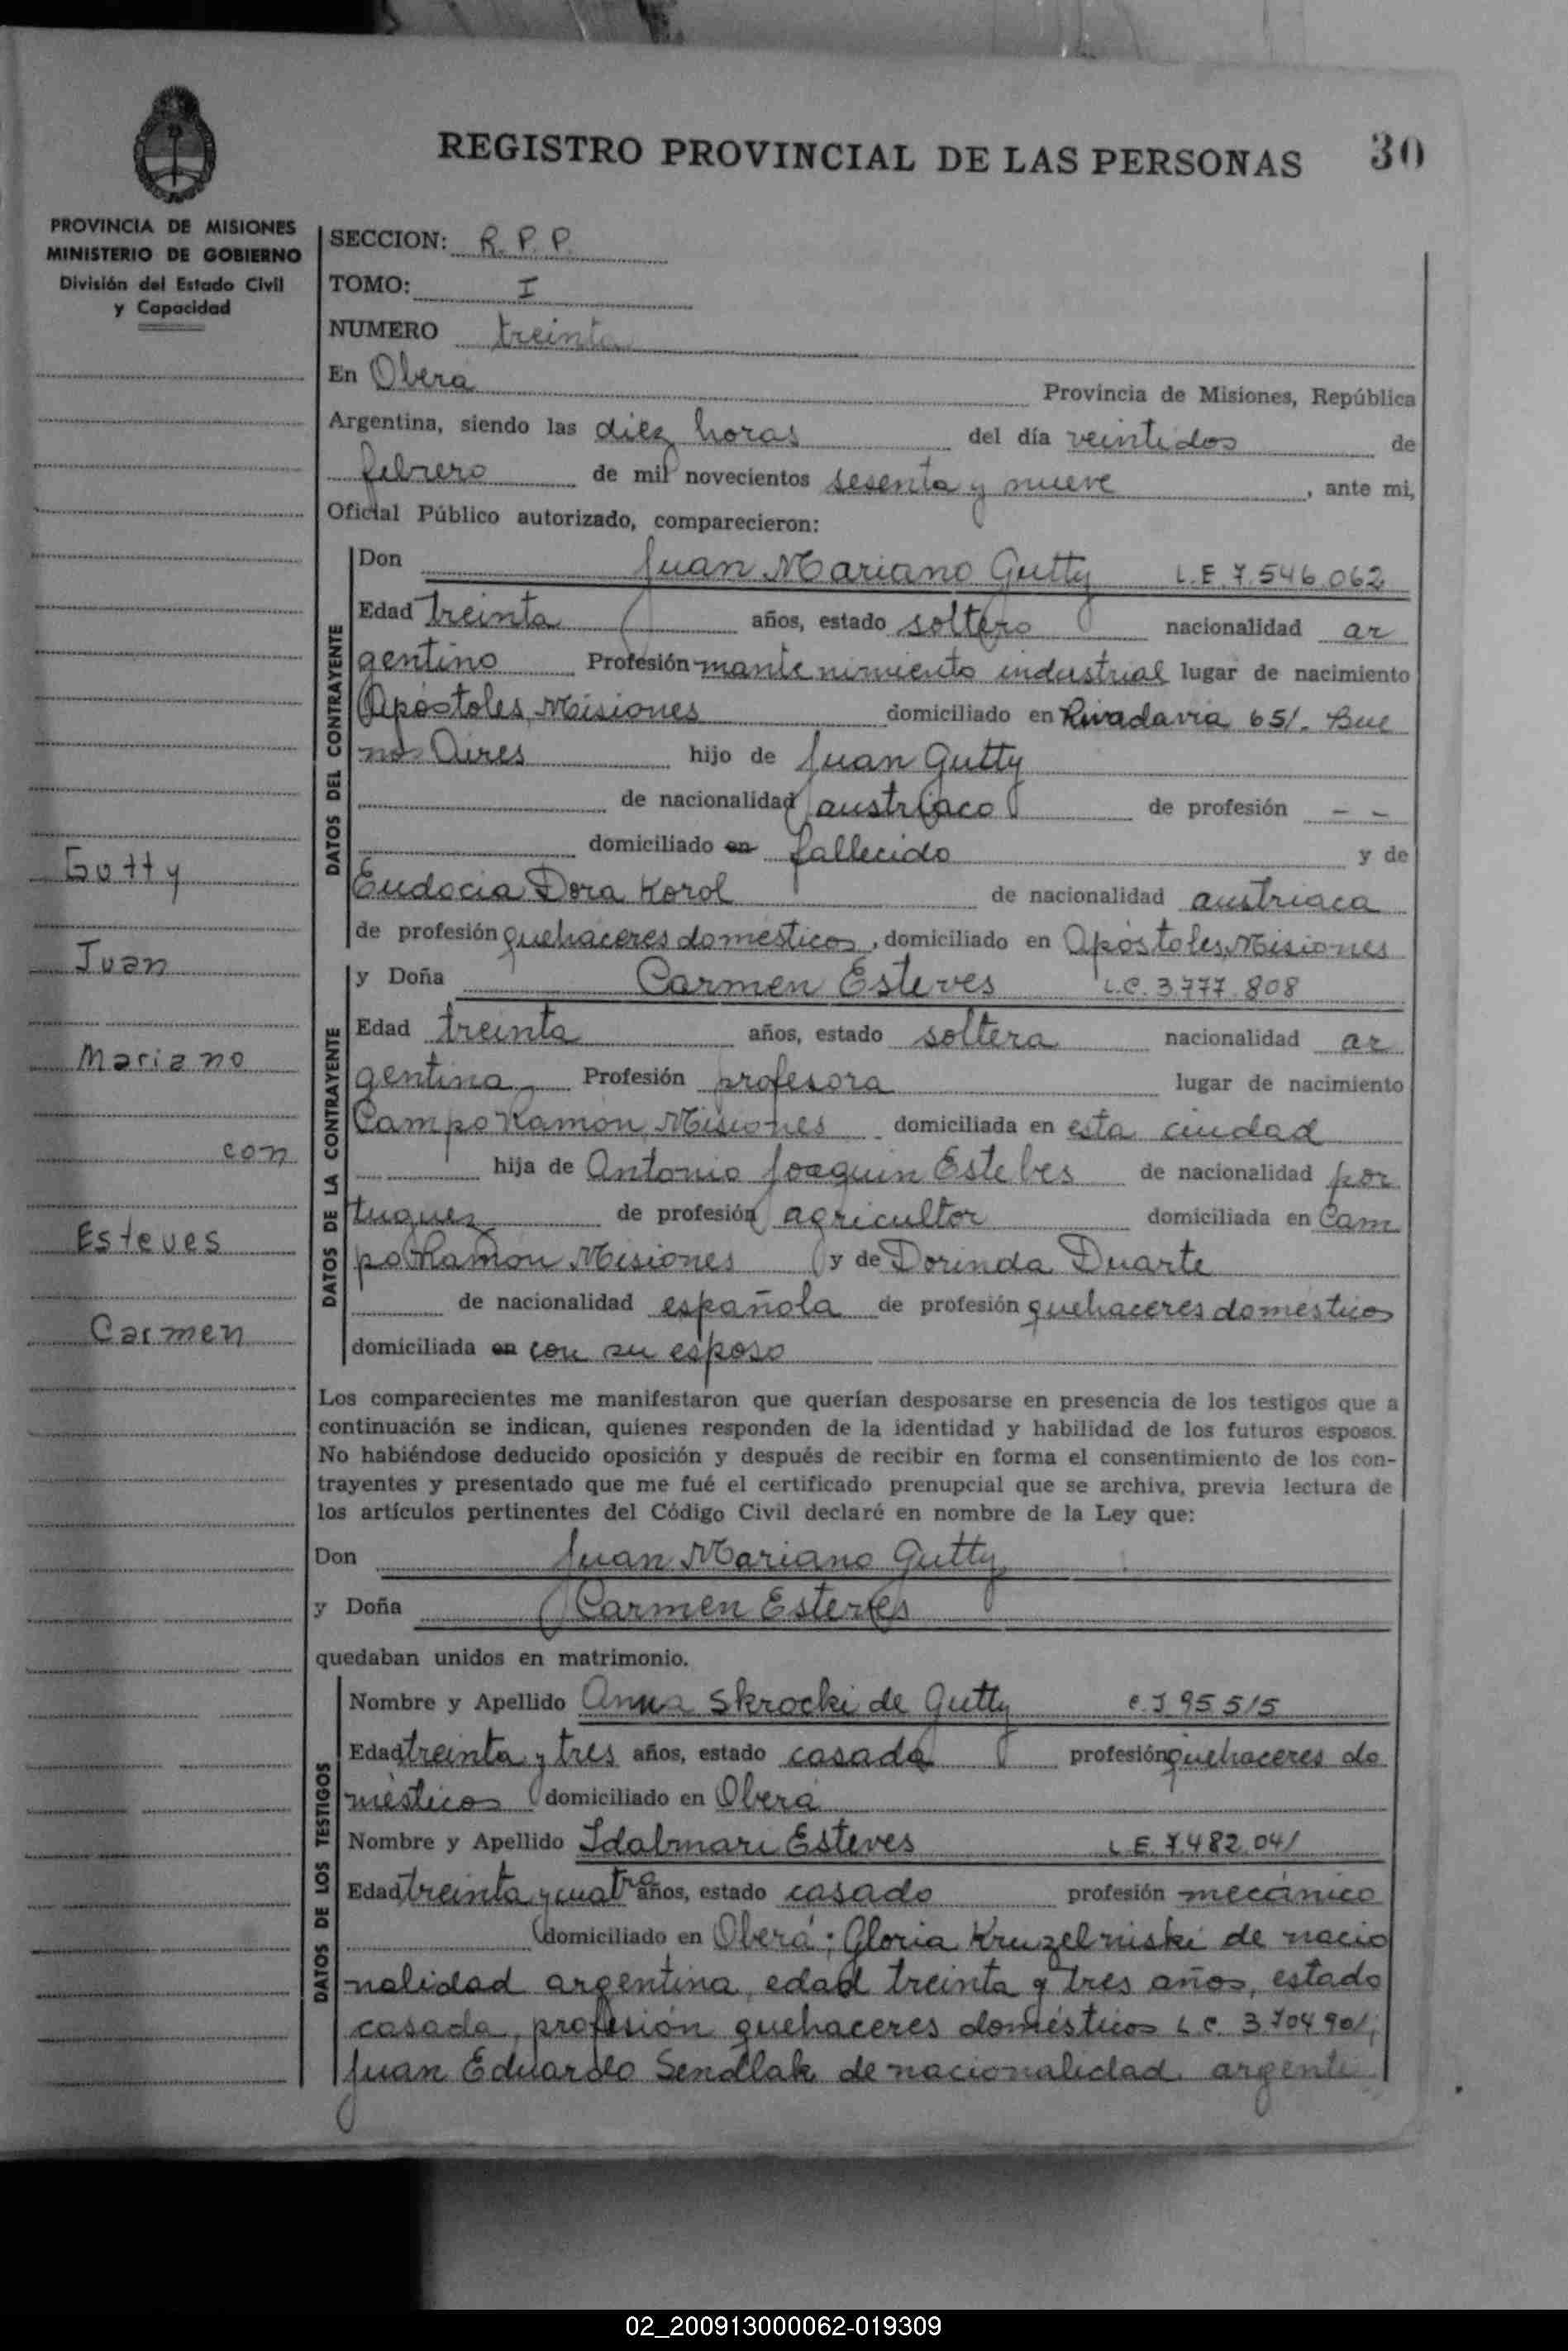 REGISTRO PROVINCIAL DE LAS PERSONAS 30
PROVINCIA DE MISIONES
MINISTERIO DE GOBIERNO
División del Estado Civil
y Capacidad
Gutty
Juan
Mariano
con
Esteves
Carmen
SECCION: R. P. P.
TOMO: I
NUMERO treinta
En Obera Provincia de Misiones, República
Argentina, siendo las diez horas del día veintidos de
febrero de mil novecientos sesenta y nueve, ante mi,
Oficial Público autorizado, comparecieron:
DATOS DEL CONTRAYENTE
Don Juan Mariano Gutty L.E. 7.546.062
Edad treinta años, estado soltero nacionalidad ar
gentino Profesión mantenimiento industrial lugar de nacimiento
Apóstoles, Misiones domiciliado en Rivadavia 651. Bue
nos Aires hijo de Juan Gutty
de nacionalidad austriaco de profesión - -
domiciliado en fallecido y de
Eudocia Dora Korol de nacionalidad austriaca
de profesión quehaceres domésticos, domiciliado en Apóstoles, Misiones
DATOS DE LA CONTRAYENTE
y Doña Carmen Esteves L.C. 3.777.808
Edad treinta años, estado soltera nacionalidad ar
gentina Profesión profesora lugar de nacimiento
Campo Ramón, Misiones domiciliada en esta ciudad
hija de Antonio Joaquin Estebes de nacionalidad por
tuguez de profesión agricultor domiciliada en Cam
po Ramón Misiones y de Dorinda Duarte
de nacionalidad española de profesión quehaceres domésticos
domiciliada en con su esposo
Los comparecientes me manifestaron que querían desposarse en presencia de los testigos que a
continuación se indican, quienes responden de la identidad y habilidad de los futuros esposos.
No habiéndose deducido oposición y después de recibir en forma el consentimiento de los con-
trayentes y presentado que me fué el certificado prenupcial que se archiva, previa lectura de
los artículos pertinentes del Código Civil declaré en nombre de la Ley que:
Don Juan Mariano Gutty
y Doña Carmen Esteves
quedaban unidos en matrimonio.
DATOS DE LOS TESTIGOS
Nombre y Apellido Anna Skrocki de Gutty C.I 95 515
Edad treinta y tres años, estado casada profesión quehaceres do
mésticos domiciliado en Oberá
Nombre y Apellido Idalmari Esteves L.E. 7.482.041
Edad treinta y cuatro años, estado casado profesión mecánico
domiciliado en Oberá; Gloria Kruzelniski de nacio
nalidad argentina, edad treinta y tres años, estado
casada, profesión quehaceres domésticos L.C. 3.704 901;
Juan Eduardo Sendlak de nacionalidad argenti
02_200913000062-019309